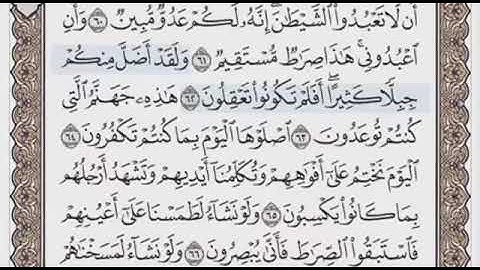 أَن لَّا تَعْبُدُوا۟ ٱلشَّيْطَـٰنَ ۖ إِنَّهُۥ لَكُمْ عَدُوٌّ مُّبِينٌ ٦٠ وَأَنِ
ٱعْبُدُونِى ۚ هَـٰذَا صِرَٰطٌ مُّسْتَقِيمٌ ٦١ وَلَقَدْ أَضَلَّ مِنكُمْ
جِبِلًّا كَثِيرًا ۖ أَفَلَمْ تَكُونُوا۟ تَعْقِلُونَ ٦٢ هَـٰذِهِۦ جَهَنَّمُ ٱلَّتِى
كُنتُمْ تُوعَدُونَ ٦٣ ٱصْلَوْهَا ٱلْيَوْمَ بِمَا كُنتُمْ تَكْفُرُونَ ٦٤
ٱلْيَوْمَ نَخْتِمُ عَلَىٰٓ أَفْوَٰهِهِمْ وَتُكَلِّمُنَآ أَيْدِيهِمْ وَتَشْهَدُ أَرْجُلُهُم
بِمَا كَانُوا۟ يَكْسِبُونَ ٦٥ وَلَوْ نَشَآءُ لَطَمَسْنَا عَلَىٰٓ أَعْيُنِهِمْ
فَٱسْتَبَقُوا۟ ٱلصِّرَٰطَ فَأَنَّىٰ يُبْصِرُونَ ٦٦ وَلَوْ نَشَآءُ لَمَسَخْنَـٰهُمْ